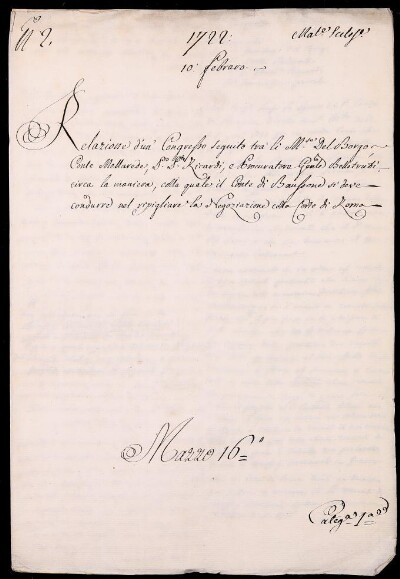 N.º 2.
1722:
Mat.ª Eccles.ª
10. febraro
Relazione d'un Congresso seguito trà li M.si Del Borgo
Conte Mellarede, P.º P.nte Ricardi, e Procuratore Gen.le
circa la maniera, colla quale il Conte di si deve
condurre nel ripigliare la Negoziazione colla Corte di Roma
Mazzo 16º
Categ.ª 1.ª